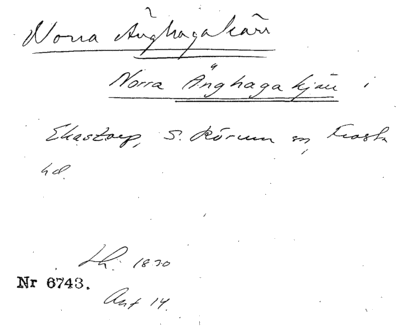 Norra Änghagakärr
Norra Änghagakjärr i
Ekastorp, S. Rörum sn, Frosta
hd.
Lh. 1820
Nr 6743.
Akt 14.